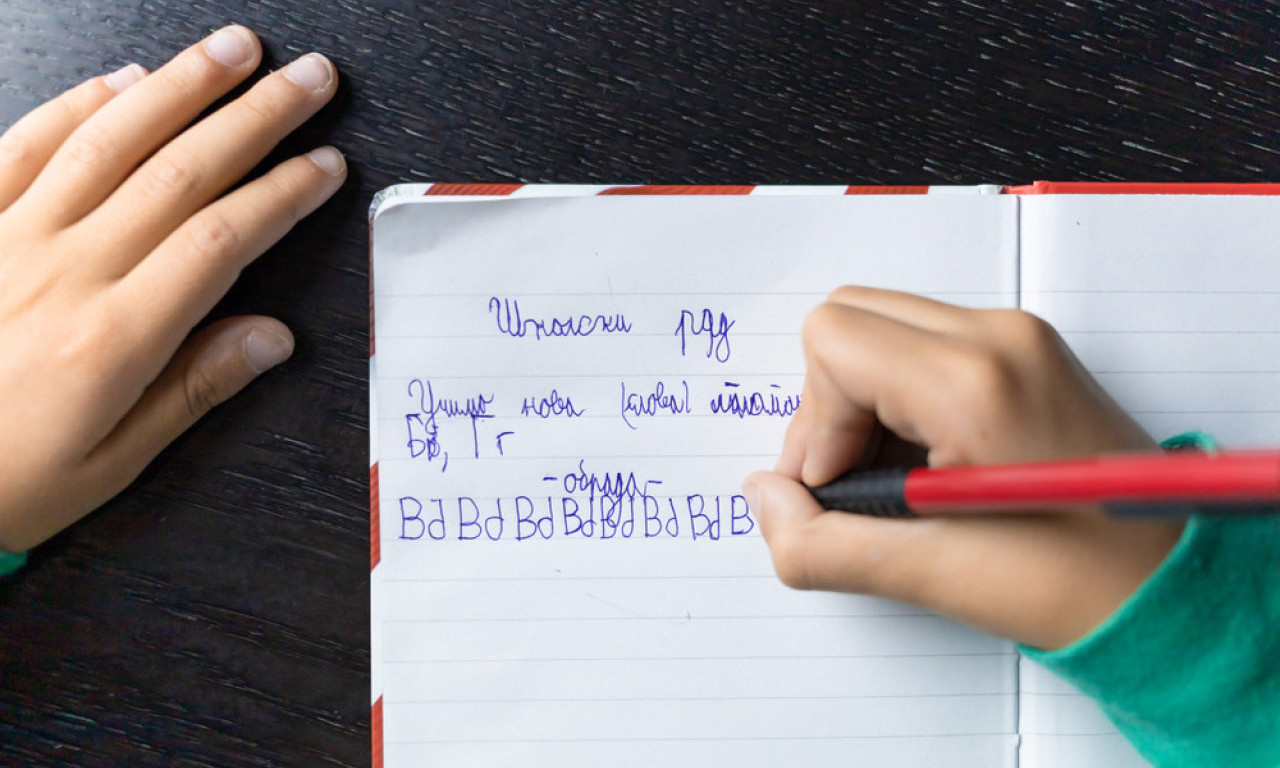 Школски рад
Учимо нова слова
Бб, Гг
-обрада-
Вд Вд Вд Вд Вд Вд Вд В